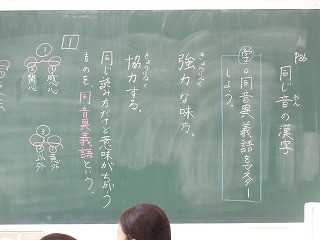 P66
同じ音の漢字
おん
学。同音異義語をマスター
しよう。
きょうりょく
強力な味方。
きょうりょく
協力する。
1
同じ読み方だけど意味がちがう
ものを、同音異義語という。
①
①感心
②関心
②
①意外
②以外